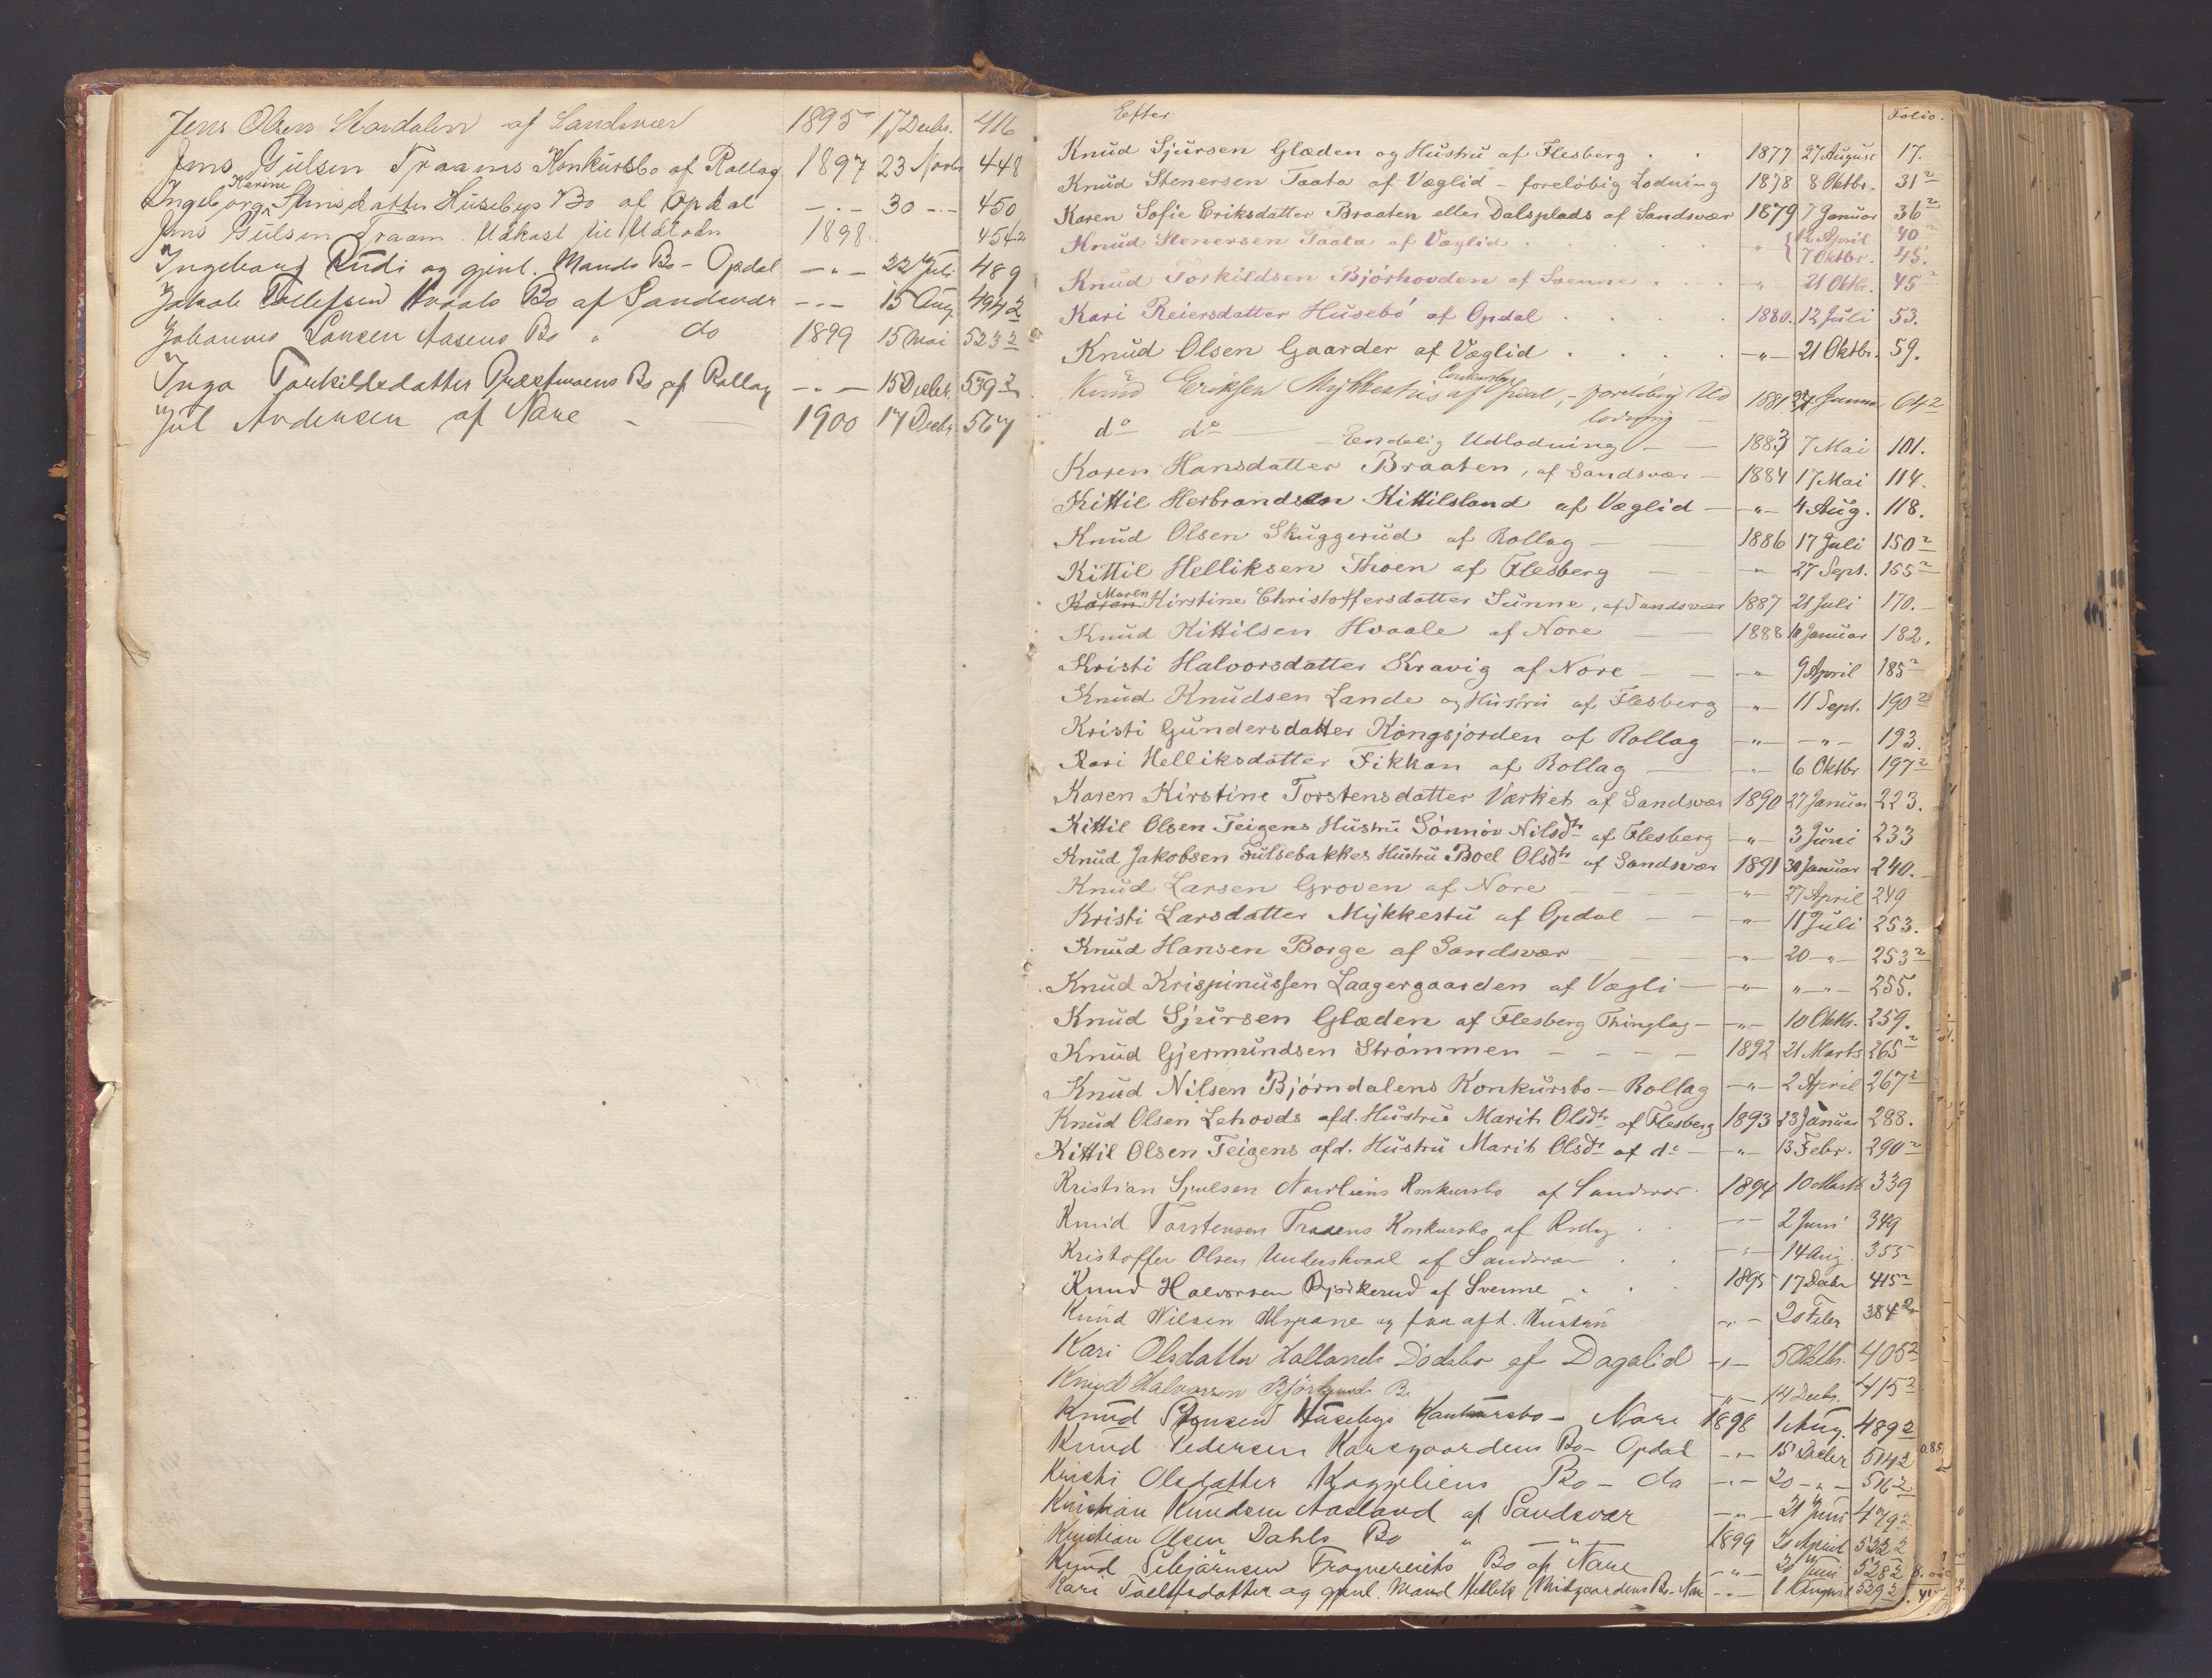 Jens Olsen af Sandsvær 1895 17 Decbr. 416
Jens Gulsen Traaens Konkursbo af Rollag 1897 23 Novbr 448
Karine
Ingeborg Stensdatter Husebys Bo af Opdal -"- 30 -"- 450
Jens Gulsen Traaen. Udkast til Udlodn 1898. 454 2
Ingeborg Rudi og gjenl. Mands Bo - Opdal -"- 22 Juli 489
Jakob Tollefsen Hvaals Bo af Sandsvær -"- 15 Aug 494 2
Johannes Larsen Aasens Bo " do 1899 15 Mai 523 2
Inga Torkildsdatter Præstmoens Bo af Rollag -"- 15 Decbr. 539 2
Jul Andersen af Nore - 1900 17 Decbr 567
Efter Folio.
Knud Sjursen Glæden og Hustru af Flesberg . . 1877 27 August 17.
Knud Stenersen Taata af Væglid - foreløbig Lodning 1878 8 Oktbr. 31 2
Karen Sofie Eriksdatter Braaten eller Dalsplads af Sandsvær 1879 7 Januar 36 2
Knud Stenersen Taata af Væglid . . . . . " { 12 April 40 2
7 Oktbr. 45.
Knud Torkildsen Bjørhovden af Svenne . . . " 21 Oktbr. 45 2
Kari Reiersdatter Husebø af Opdal . . . . 1880. 12 Juli 53.
Knud Olsen Gaarder af Væglid . . . . -"- 21 Oktbr. 59.
Knud Eriksen Mykkestus af Opdal, - foreløbig Ud 1881 27 Januar 64 2
lodning -
do do - Endelig Udlodning - - 1883 7 Mai 101.
Karen Hansdatter Braaten, af Sandsvær - 1884 17 Mai 114.
Kittil Herbrandsen Kittilsland af Væglid - -"- 4 Aug. 118.
Knud Olsen Skuggerud af Rollag - - 1886 17 Juli 150 2
Kittil Helliksen Thoen af Flesberg - - -"- 27 Sept. 155 2
Maren
Karen Kirstine Christoffersdatter Sunne, af Sandsvær 1887 21 Juli 170.
Knud Kittilsen Hvaale af Nore - - 1888 18 Januar 182.
Kristi Halvorsdatter Kravig af Nore - - -"- 9 April 185 2
Knud Knudsen Lande og Hustru af Flesberg -"- 11 Sept. 190 2
Kristi Gundersdatter Kongsjorden af Rollag -"- -"- 193.
Kari Helliksdatter Fikkan af Rollag - -"- 6 Oktbr 197 2
Karen Kirstine Torstensdatter Værket af Sandsvær 1890 27 Januar 223.
Kittil Olsen Teigens Hustru Sønnøv Nilsdtr af Flesberg -"- 3 Juni 233
Knud Jakobsen Fulsebakkes Hustru Boel Olsdtr af Sandsvær 1891 30 Januar 240.
Knud Larsen Groven af Nore - - - - -"- 27 April 249
Kristi Larsdatter Mykkestu af Opdal - - -"- 11 Juli 253.
Knud Hansen Borge af Sandsvær - - - -"- 20 -"- 253 2
Knud Krispinussen Laagergaarden af Vægli - -"- "-"- 255.
Knud Sjursen Glæden af Flesberg Thinglag - -"- 10 Oktbr. 259.
Knud Gjermundsen Strømmen - - - - 1892 21 Marts 265 2
Knud Nilsen Bjørndalens Konkursbo - Rollag -"- 2 April 267 2
Knud Olsen Lehovds afd. Hustru Marit Olsdtr af Flesberg 1893 23 Januar 288.
Kittil Olsen Teigens afd. Hustru Marit Olsdtr af do - -"- 13 Febr. 290 2
Kristian Sjulsen Konkursbo af Sandsvær. 1894 10 Marts 339
Knud Torstensen Traaens Konkursbo af . . -"- 2 Juni 349
Kristoffer Olsen af Sandsvær . . -"- 14 Aug. 355
Knud Halvorsen Bjørkerud af Svenne . . . 1895 17 Decbr 415 2
Knud Nilsen og før afd. Hustru -"- 20 Febr 384 2
Kari Olsdatter Hallands Dødsbo af Dagalid -"- 5 Oktbr. 405 2
Knud Halvorsen Bjørkeruds Bo -"- 14 Decbr. 415 2
Knud Husebys Konkursbo - Nore 1898 1 Aug. 489 2
Knud Pedersen Bo - Opdal -"- 15 Decbr 514 2
Kristi Olsdatter Bo - do -"- 20 -"- 516 2
Kristian Knudsen Aasland af Sandsvær -"- 21 Juni 479 2
Kristian Olsen Dahls Bo " -"- 1899 20 April 522 2
Knud Bo af Nore -"- 20 Juni 528 2
Kari Tollefsdatter og gjenl. Mand Hellik Bo. Nore -"- 1 August 529 2